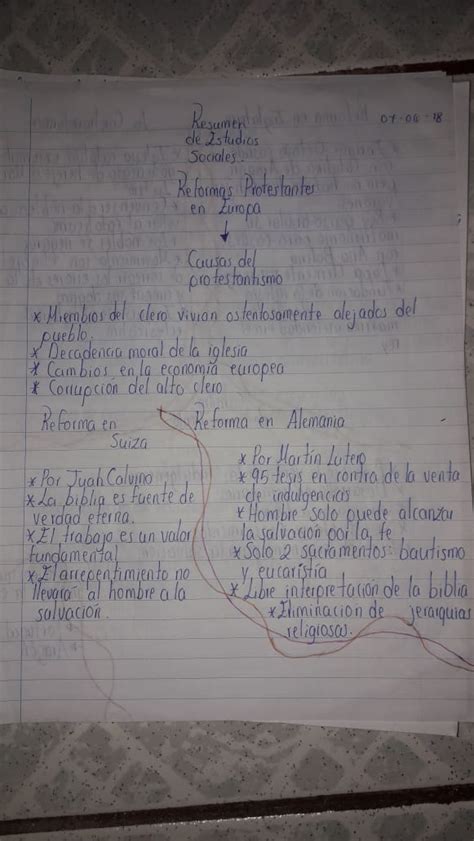 Resumen
de Estudios
Sociales.
07-06-18
Reformas Protestantes
en Europa
Causas del
protestantismo
* Miembros del clero vivian ostentosamente alejados del
pueblo.
* Decadencia moral de la iglesia
* Cambios en la economía europea
* Corrupción del alto clero
Reforma en
Suiza
* Por Juan Calvino
* La biblia es fuente de
verdad eterna.
* El trabajo es un valor
fundamental
* El arrepentimiento no
llevara al hombre a la
salvación.
Reforma en Alemania
* Por Martín Lutero
* 95 tesis en contra de la venta
de indulgencias
* Hombre solo puede alcanzar
la salvación por la fe
* Solo 2 sacramentos: bautismo
y eucaristía
* Libre interpretación de la biblia
* Eliminación de jerarquias
religiosas.